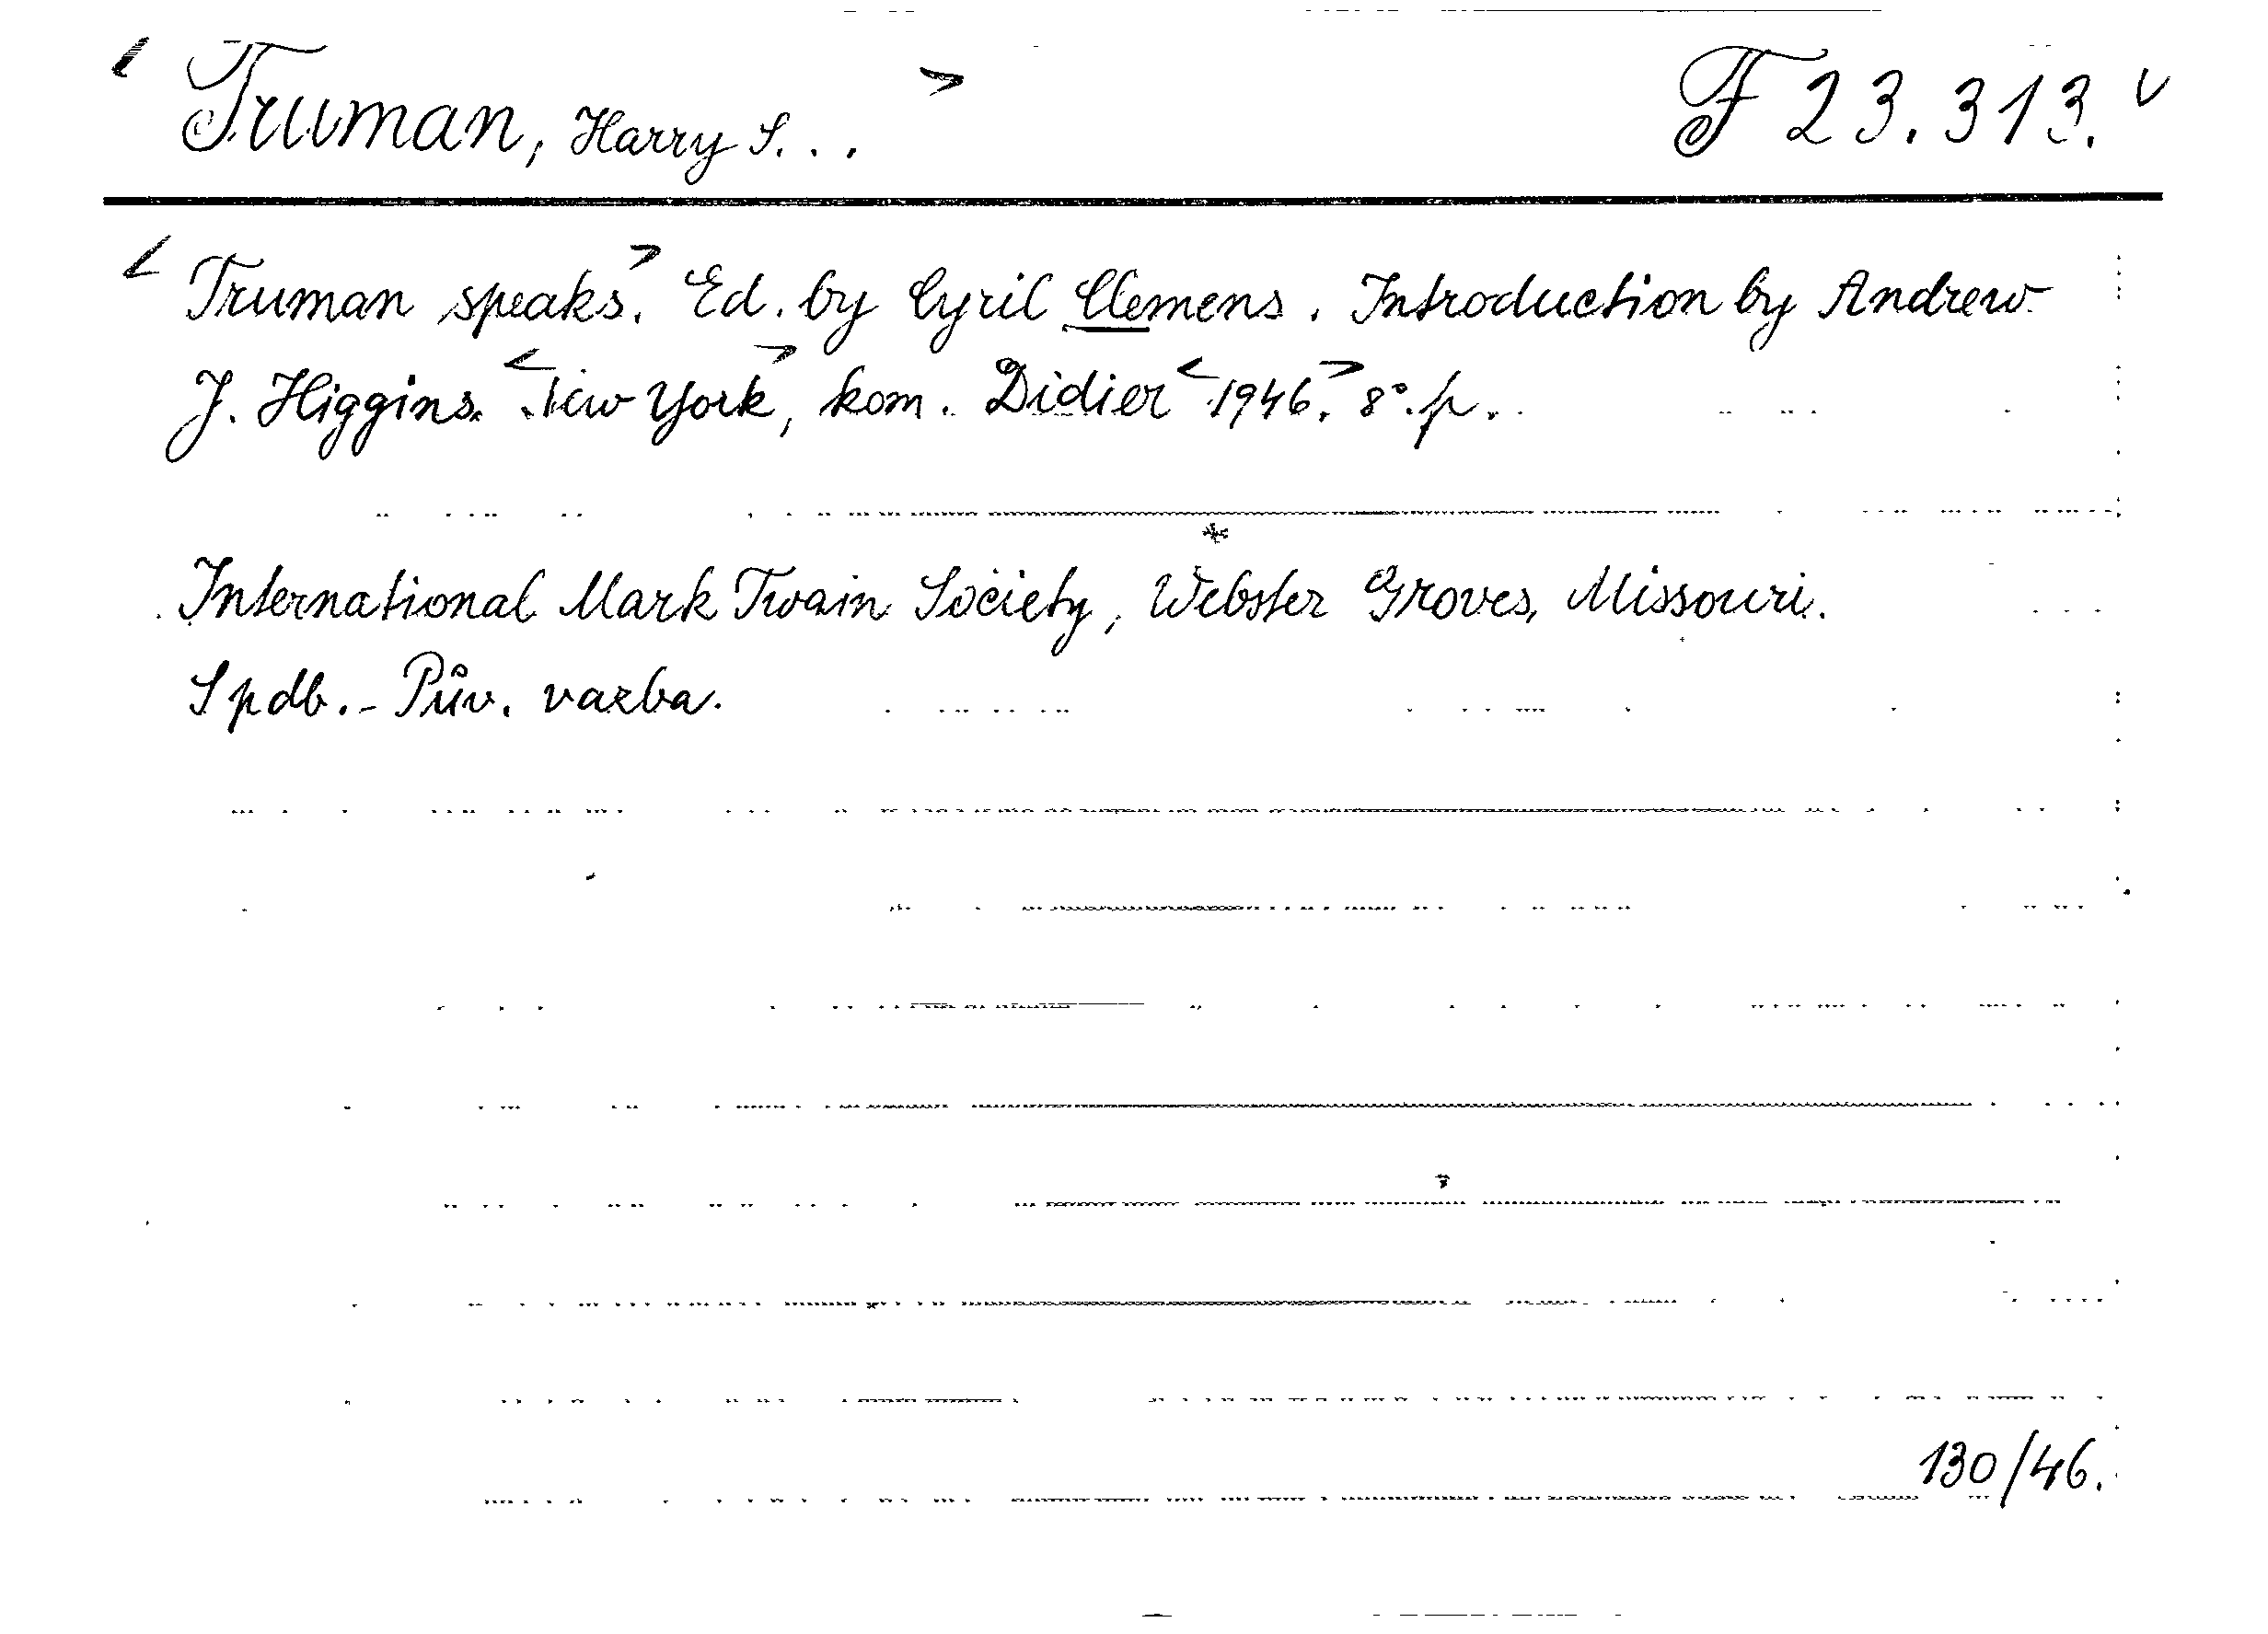 < Truman, Harry S... > F 23.313. v
< Truman speaks. > Ed. by Cyril Clemens. Introduction by Andrew
J. Higgins. < New York >, kom. Didier < 1946. > 8°. p.
*
International Mark Twain Society, Webster Groves, Missouri.
Spdb. - Pův. vazba.
130/46.